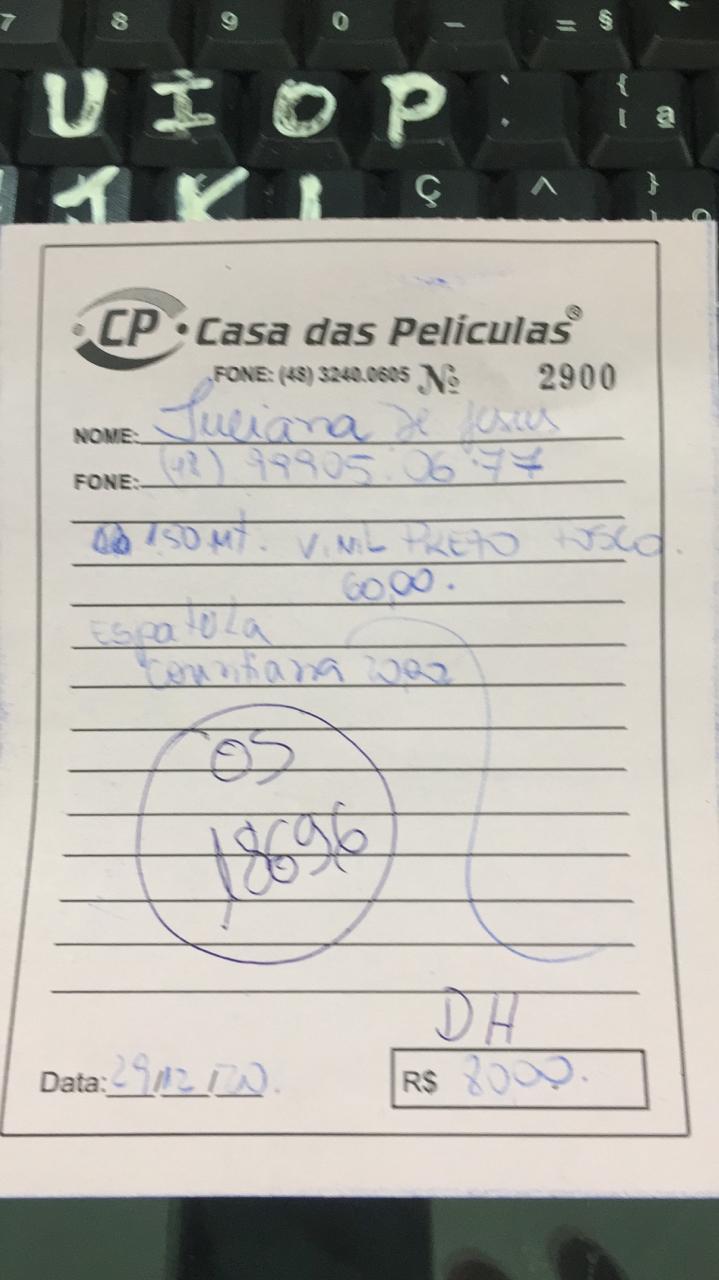 7 8 9 0 - = §
U I O P ` { [ ª
J K L Ç ^ }
CP Casa das Películas®
FONE: (48) 3240.0605 Nº 2900
NOME: Juciana de Jesus
FONE: (48) 99905.06.77
1.50 Mt. VINIL PRETO FOSCO.
60,00.
ESPATOLA
20,00
OS
18696
DH
Data: 29/12/20.
R$ 80,00.